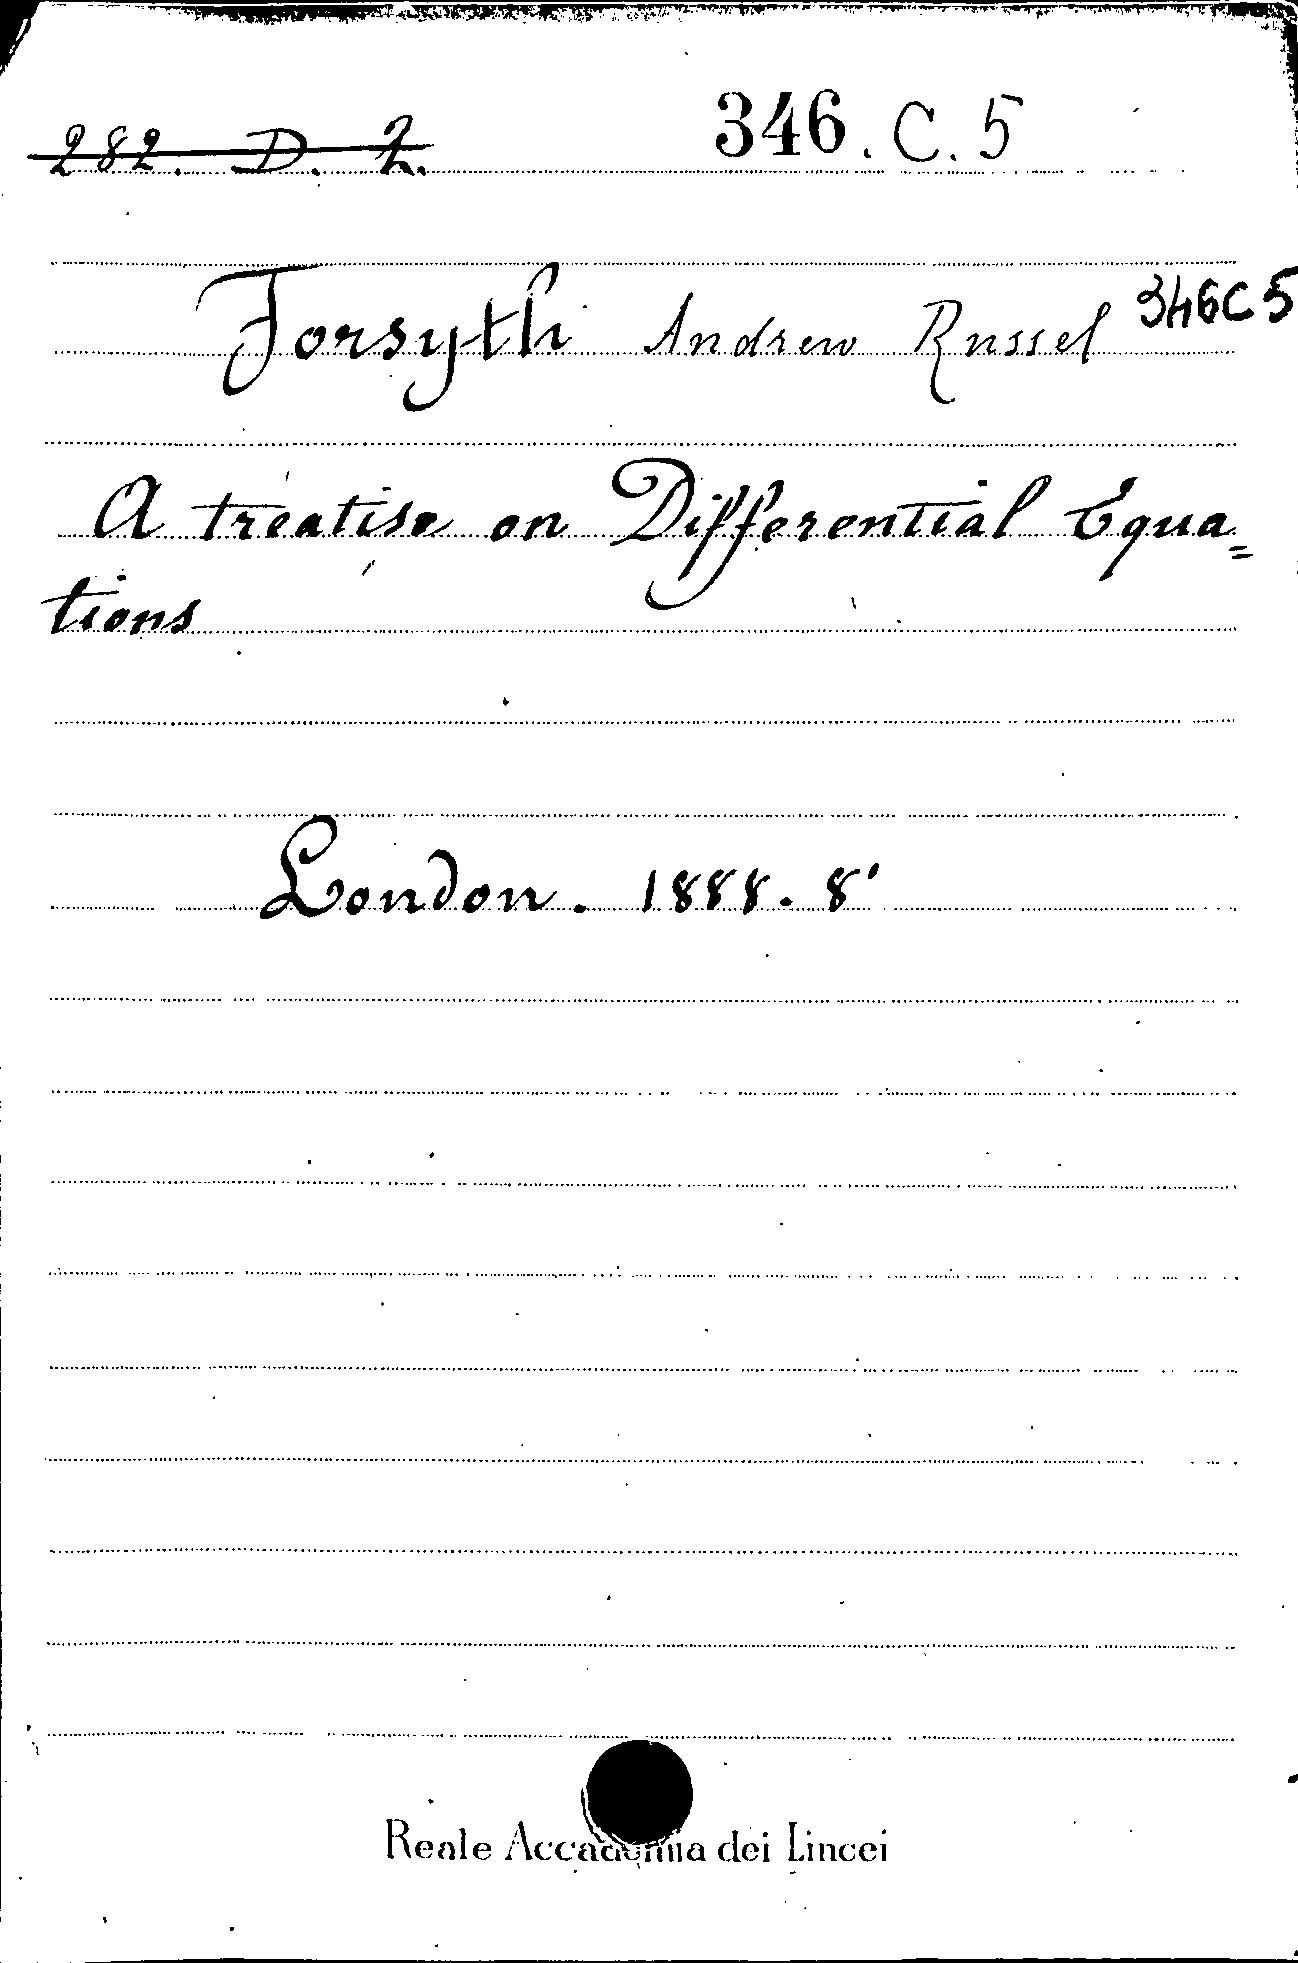 282. D. 2. 346. C. 5
Forsyth Andrew Russel 346C5
A treatise on Differential Equa=
tions
London. 1888. 8°
Reale Accademia dei Lincei